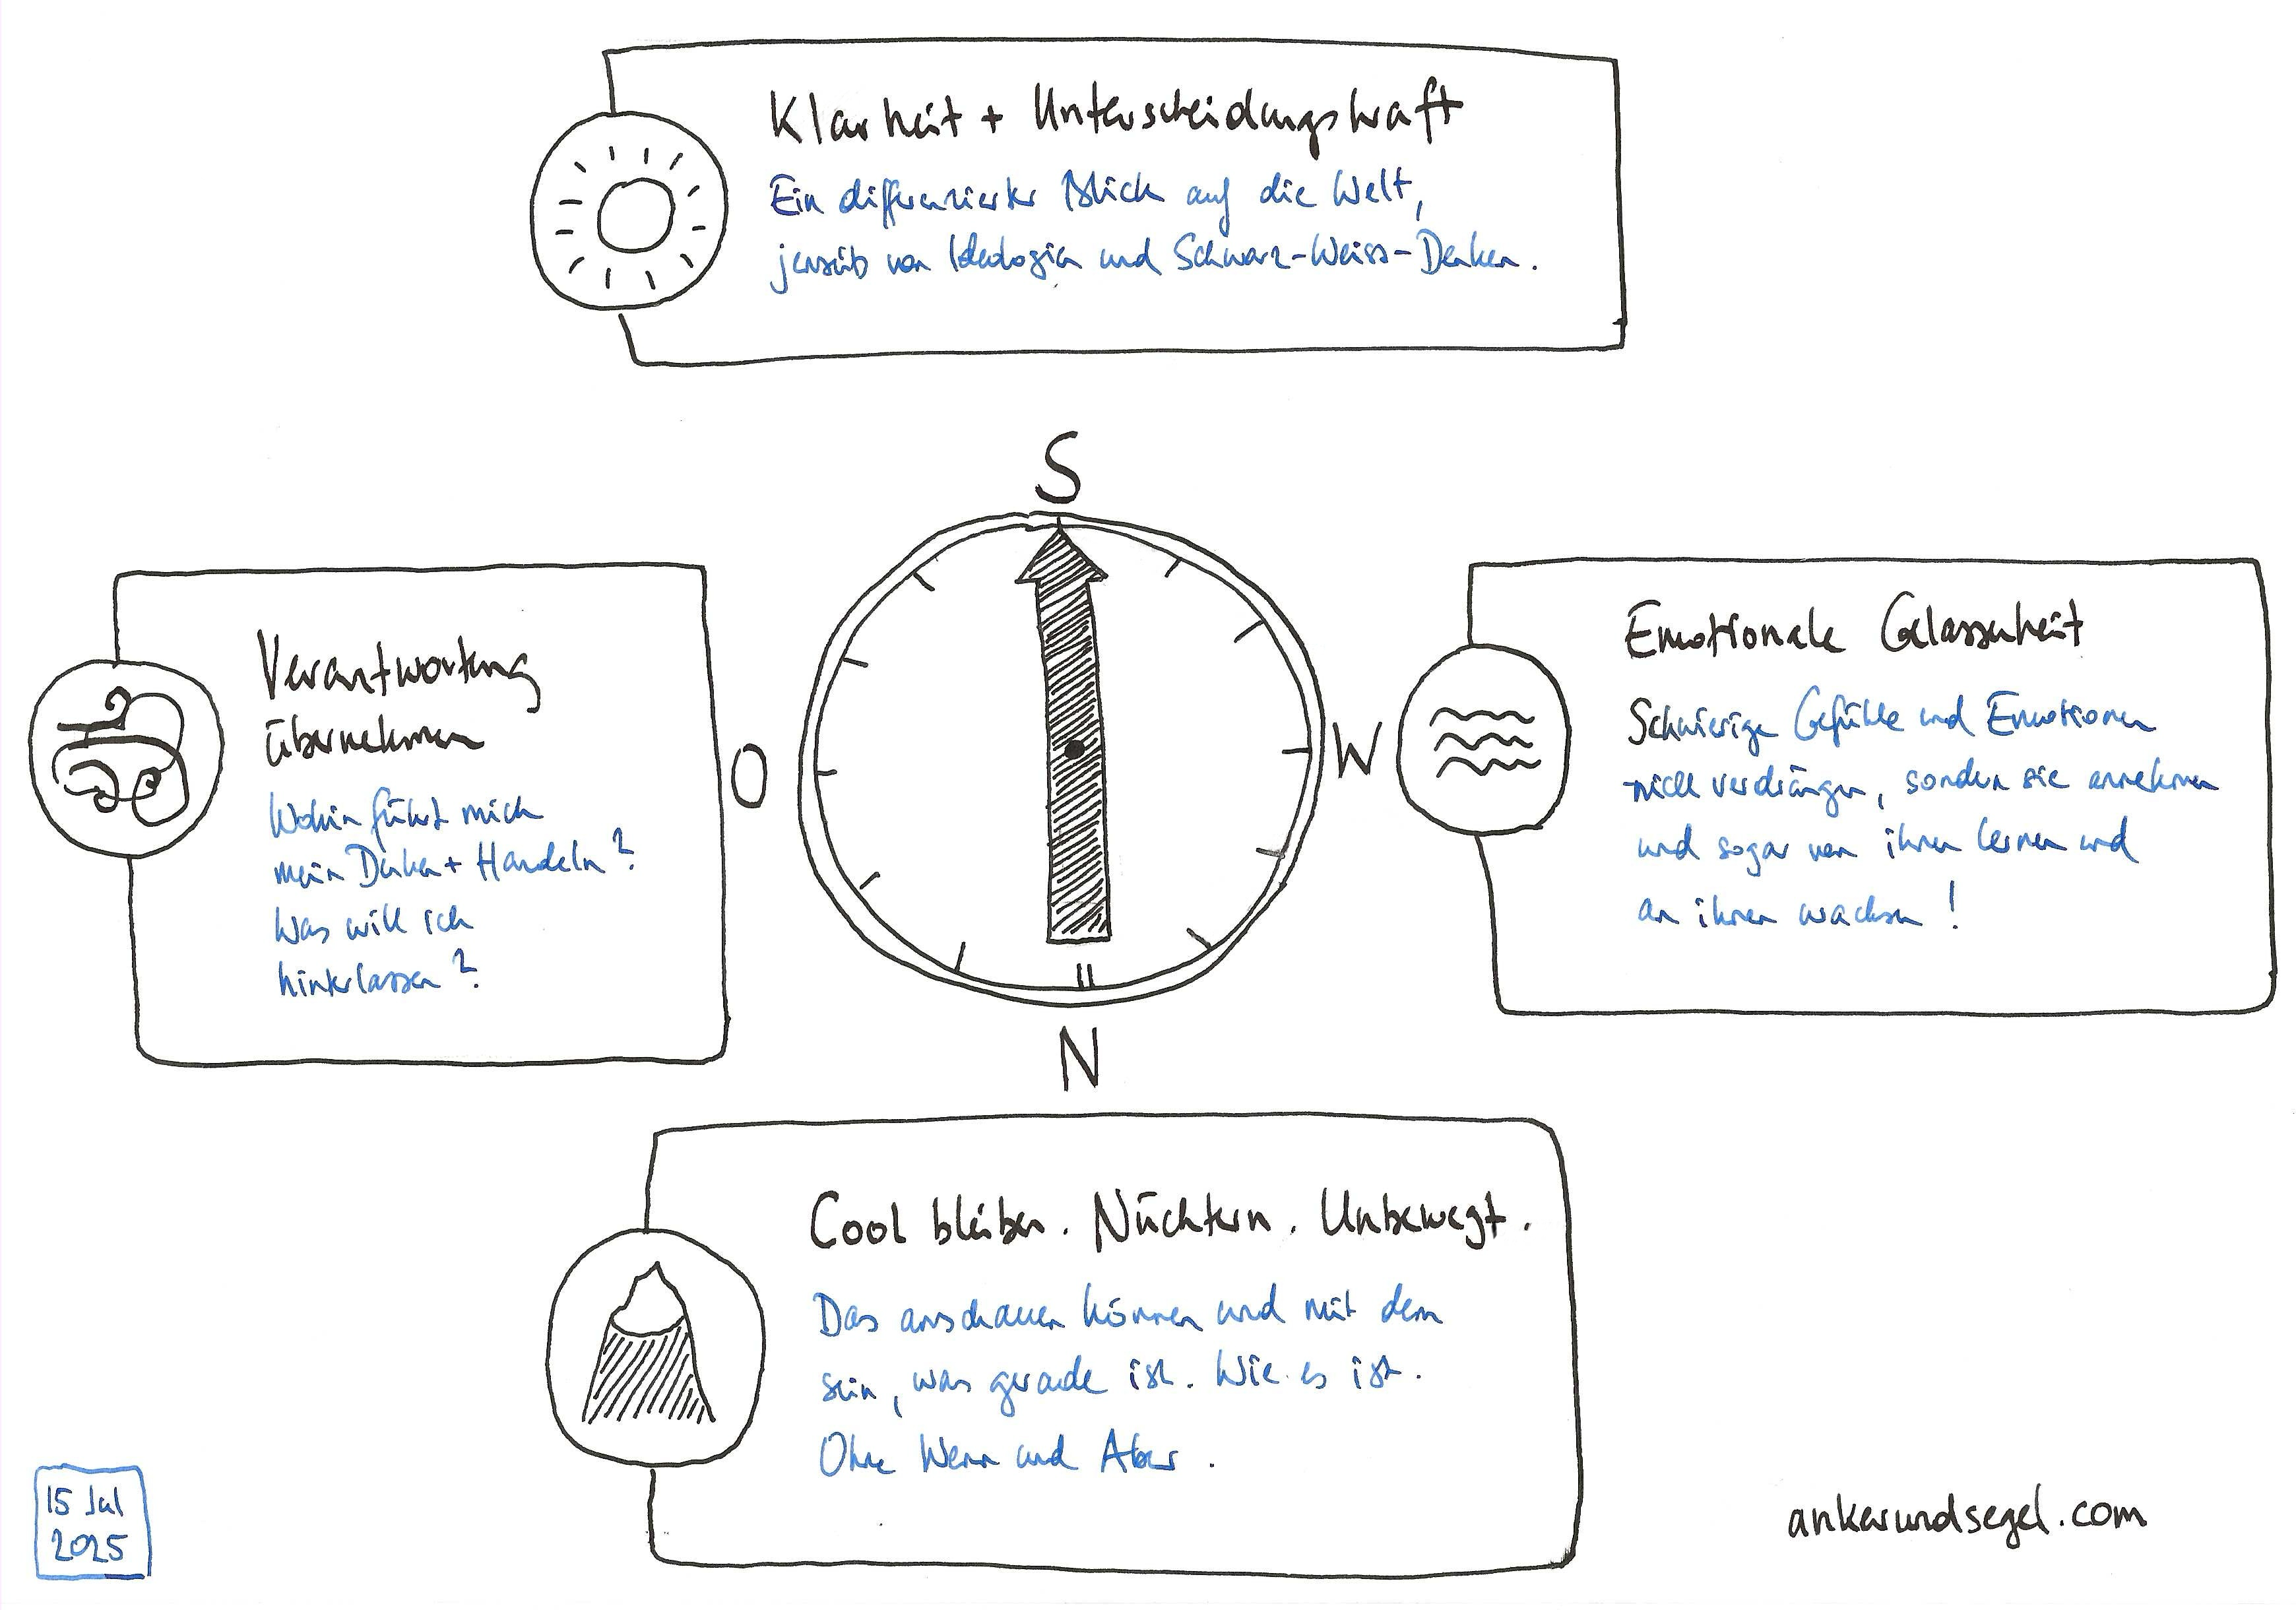 Klarheit + Unterscheidungskraft
Ein differenzierter Blick auf die Welt,
jenseits von Ideologien und Schwarz-Weiss-Denken.
S
Verantwortung
übernehmen
Wohin führt mich
mein Denken + Handeln?
Was will ich
hinterlassen?
O
W
Emotionale Gelassenheit
Schwierige Gefühle und Emotionen
nicht verdrängen, sondern sie annehmen
und sogar von ihnen lernen und
an ihnen wachsen!
N
Cool bleiben. Nüchtern. Unbewegt.
Das anschauen können und mit dem
sein, was gerade ist. Wie es ist.
Ohne Wenn und Aber.
15 Jul
2025
ankerundsegel.com